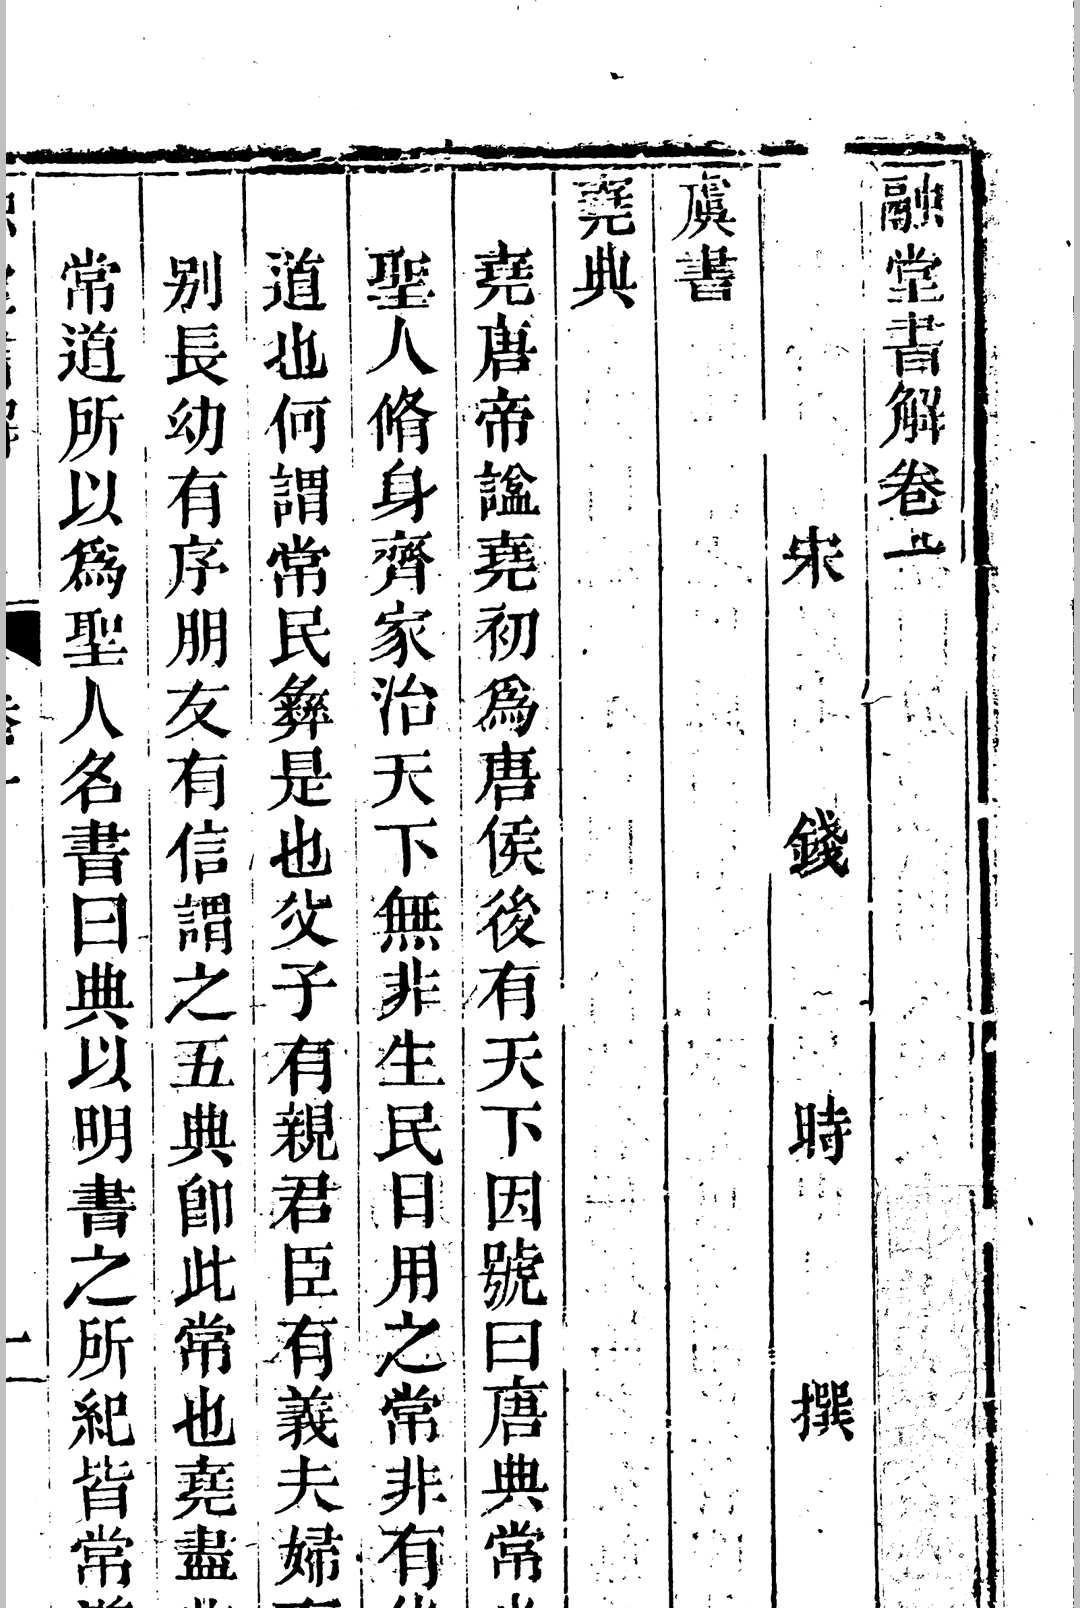 融堂書解卷一
宋 錢 時 撰
虞書
堯典
堯唐帝諡堯初爲唐侯後有天下因號曰唐典常
聖人脩身齊家治天下無非生民日用之常非有
道也何謂常民彝是也父子有親君臣有義夫婦
别長幼有序朋友有信謂之五典卽此常也堯盡
常道所以爲聖人名書曰典以明書之所紀皆常